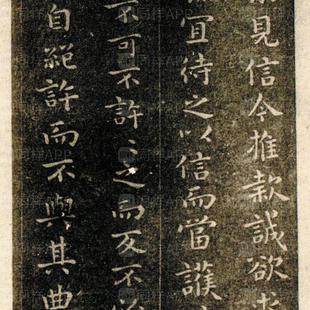 見信今推款誠欲求
宜待之以信而當護
不可不許〻之而反不必
自絕許而不與其曲